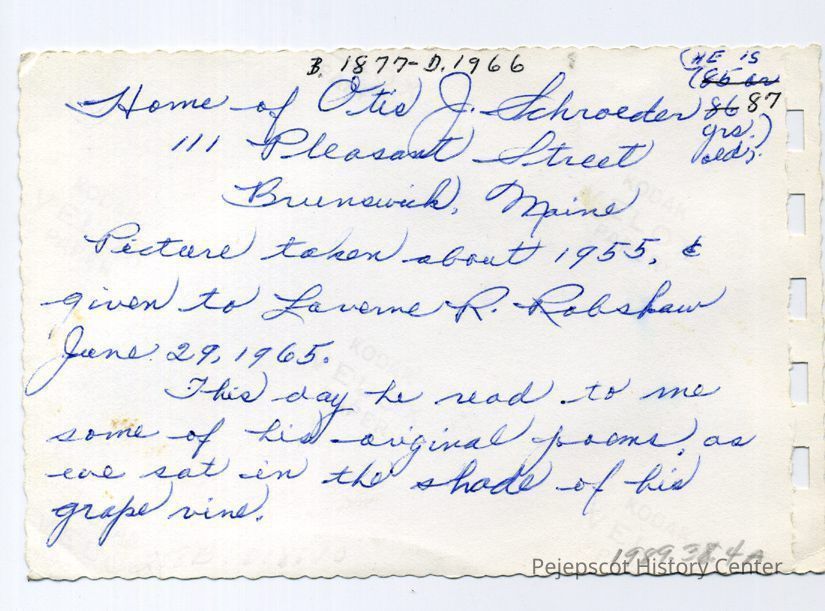 B. 1877-D. 1966
(HE IS
(85 or
86 87
yrs.)
old).
Home of Otis J. Schroeder
111 Pleasant Street
Brunswick, Maine
Picture taken about 1955, &
given to Laverne R. Robshaw
June 29, 1965.
This day he read to me
some of his original poems, as
we sat in the shade of his
grape vine.
1989.38.4A
Pejepscot History Center